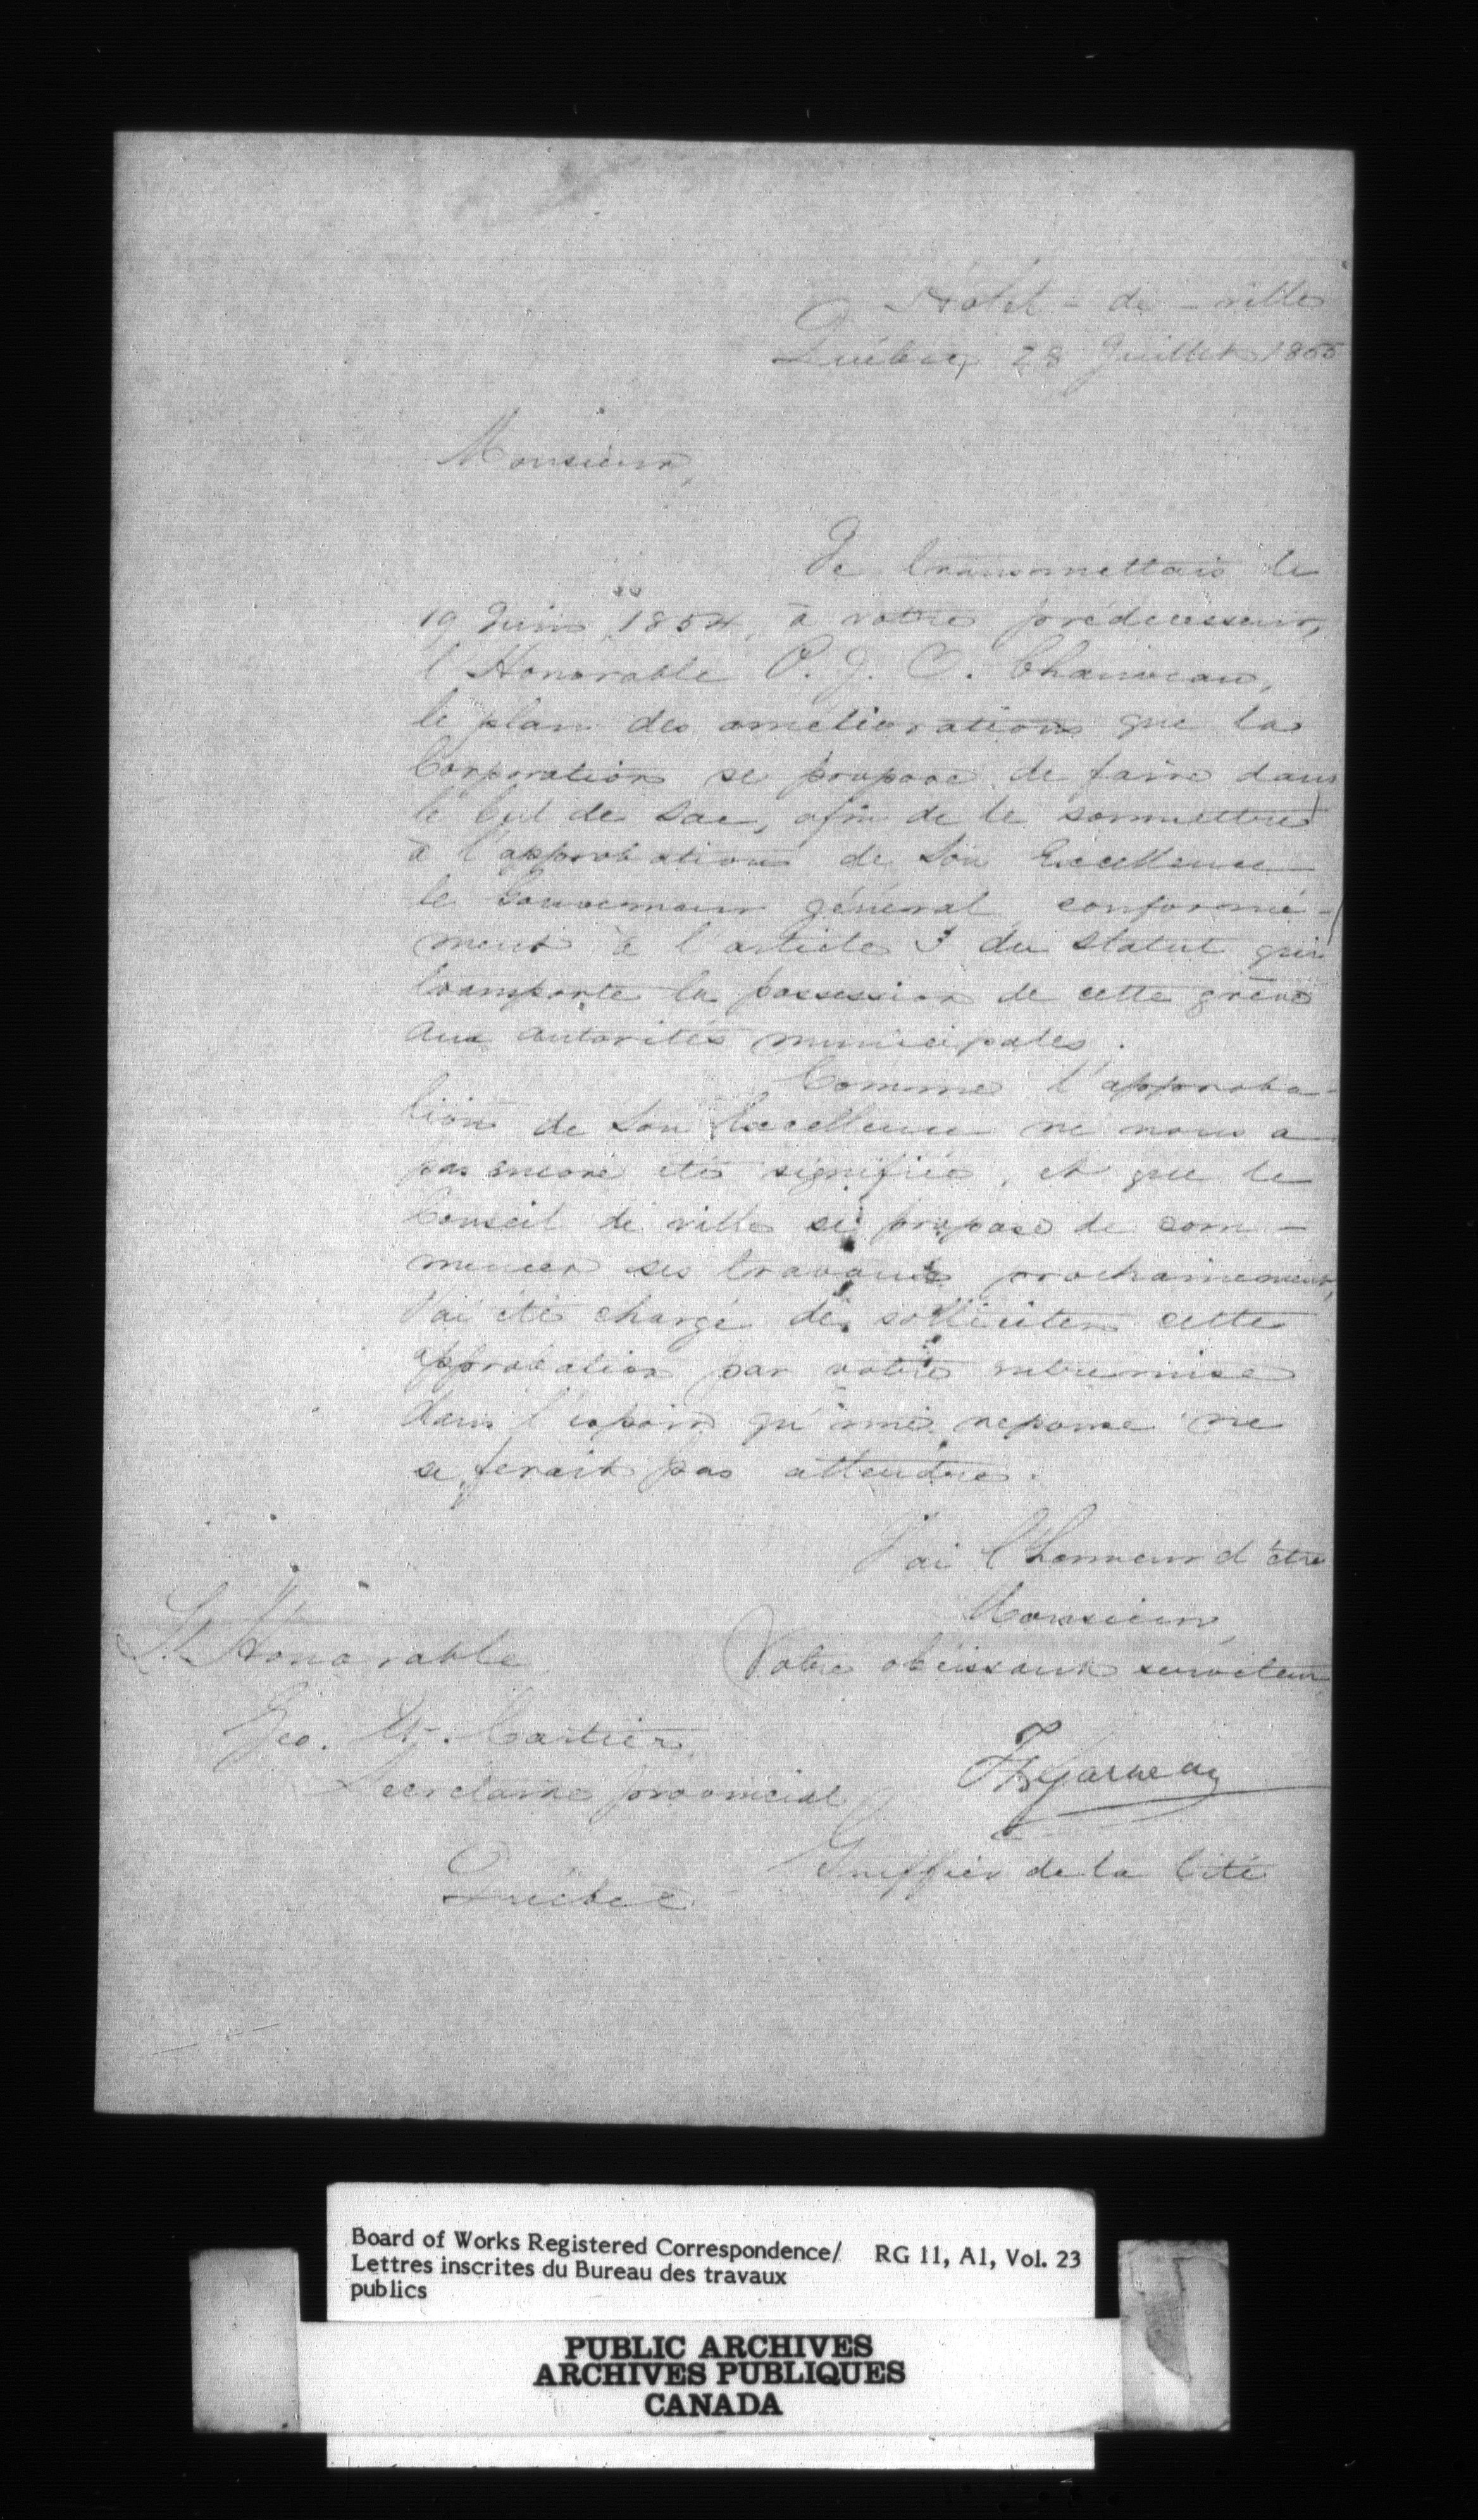 Hôtel-de-ville
Québec, 28 Juillet 1855
Monsieur,
Je transmettais le
19 Juin 1854, à votre prédécesseur,
l'Honorable P. J. O. Chauveau,
le plan des améliorations que la
Corporation se propose de faire dans
le Cul de Sac, afin de le soumettre
à l'approbation de Son Excellence
le Gouverneur général conformé-
ment à l'article 3 du Statut qui
transporte la possession de cette grève
aux autorités municipales.
Comme l'approba-
tion de Son Excellence ne nous a
pas encore été signifiée, et que le
Conseil de ville se propose de com-
mencer ses travaux prochainement,
J'ai été chargé de solliciter cette
approbation par votre entremise
dans l'espoir qu'une reponse ne
se ferait pas attendre.
J'ai l'honneur d'être
Monsieur,
Votre obéissant serviteur
L'Honorable
Geo. Et. Cartier
Secrétaire provincial
Québec
F X Garneau
Greffier de la Cité
Board of Works Registered Correspondence/ RG 11, A1, Vol. 23
Lettres inscrites du Bureau des travaux
publics
PUBLIC ARCHIVES
ARCHIVES PUBLIQUES
CANADA